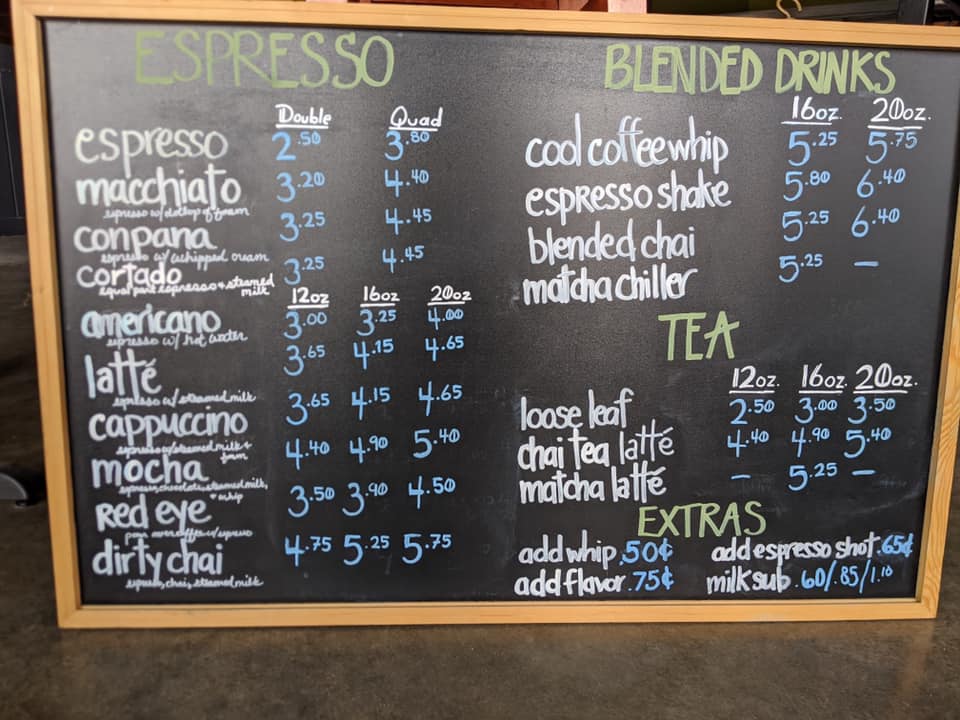 ESPRESSO
Double Quad
espresso 2.50 3.80
macchiato 3.20 4.40
espresso w/ dollop of foam
conpana 3.25 4.45
espresso w/ whipped cream
cortado 3.25 4.45
equal part espresso + steamed milk
12oz 16oz 20oz
americano 3.00 3.25 4.00
espresso w/ hot water
latté 3.65 4.15 4.65
espresso w/ steamed milk
cappuccino 3.65 4.15 4.65
espresso w/ steamed milk + foam
mocha 4.40 4.90 5.40
espresso, chocolate, steamed milk, + whip
Red eye 3.50 3.90 4.50
pour over coffee w/ espresso
dirty chai 4.75 5.25 5.75
espresso, chai, steamed milk
BLENDED DRINKS
16oz. 20oz.
cool coffee whip 5.25 5.75
espresso shake 5.80 6.40
blended chai 5.25 6.40
matcha chiller 5.25 —
TEA
12oz. 16oz. 20oz.
loose leaf 2.50 3.00 3.50
chai tea latté 4.40 4.90 5.40
matcha latté — 5.25 —
EXTRAS
add whip .50¢ add espresso shot .65¢
add flavor .75¢ milk sub .60/.85/1.10